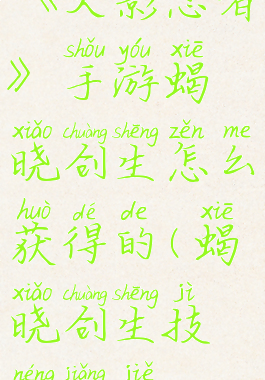 《火影忍者
shǒu yóu xiē
》手游蝎
xiǎo chuàng shēng zěn me
晓创生怎么
huò dé de xiē
获得的(蝎
xiǎo chuàng shēng jì
晓创生技
néng jiǎng jiě